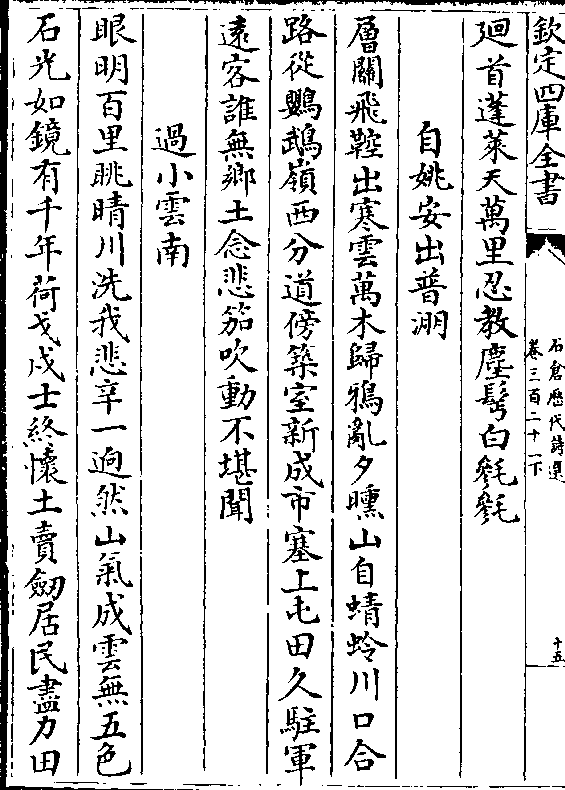 欽定四庫全書
石倉歷代詩選
卷三百二十一下
十五
廻首蓬萊天萬里忍教塵鬓白毿毿
自姚安出普淜
層關飛鞚出寒雲萬木歸鴉亂夕曛山自蜻蛉川口合
路從鸚鵡嶺西分道傍築室新成市塞上屯田久駐軍
遠客誰無鄉土念悲笳吹動不堪聞
過小雲南
眼明百里眺晴川洗我悲辛一逈然山氣成雲無五色
石光如鏡有千年荷戈戍士終懷土賣劒居民盡力田